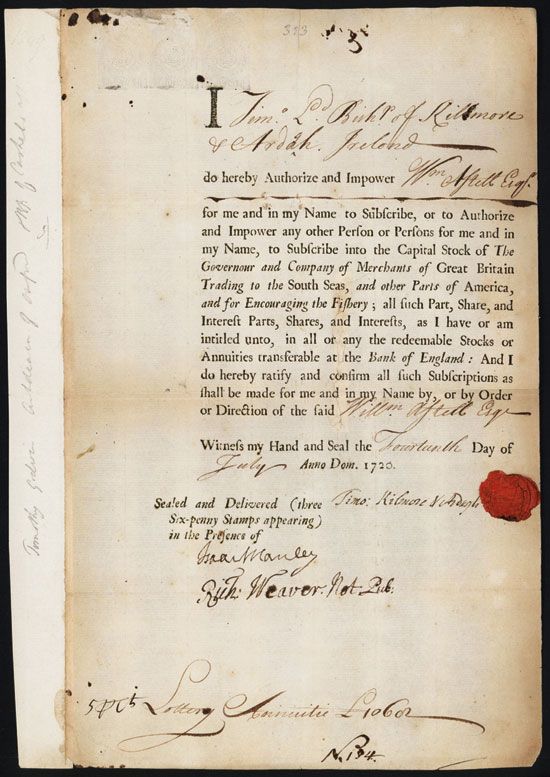 353
3
I Timo. Ld. Bishp of Killmore
& Ardàh. Ireland
do hereby Authorize and Impower Wm. Astell Esqr.
for me and in my Name to Subscribe, or to Authorize
and Impower any other Person or Persons for me and in
my Name, to Subscribe into the Capital Stock of The
Governour and Company of Merchants of Great Britain
Trading to the South Seas, and other Parts of America,
and for Encouraging the Fishery; all such Part, Share, and
Interest Parts, Shares, and Interests, as I have or am
intitled unto, in all or any the redeemable Stocks or
Annuities transferable at the Bank of England: And I
do hereby ratify and confirm all such Subscriptions as
shall be made for me and in my Name by, or by Order
or Direction of the said Willm Astell Esqr
Witness my Hand and Seal the Fourteenth Day of
July Anno Dom. 1720.
Sealed and Delivered (three Timo: Kilmore & Ardagh
Six-penny Stamps appearing)
in the Presence of
Isaac Manley
Rich: Weaver. Not. Pub:
5 pCt Lottery Annuitie £1060
No. 134.
Timothy Godwin Archdeacon of Oxford